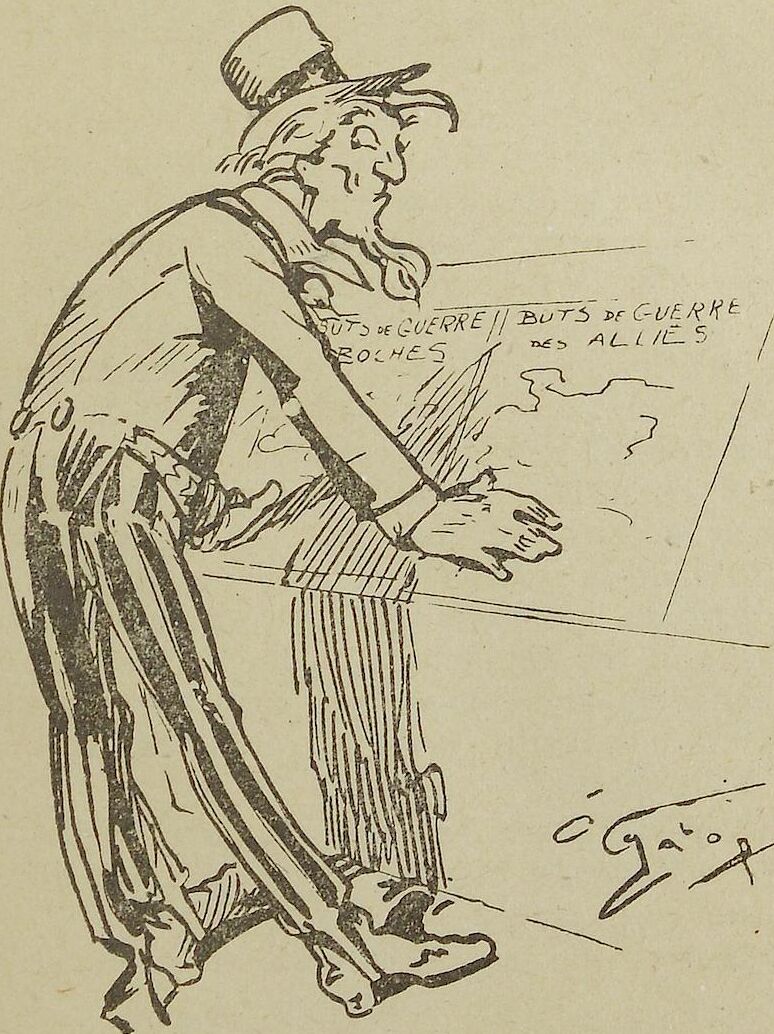 BUTS DE GUERRE
BOCHES
BUTS DE GUERRE
DES ALLIÉS